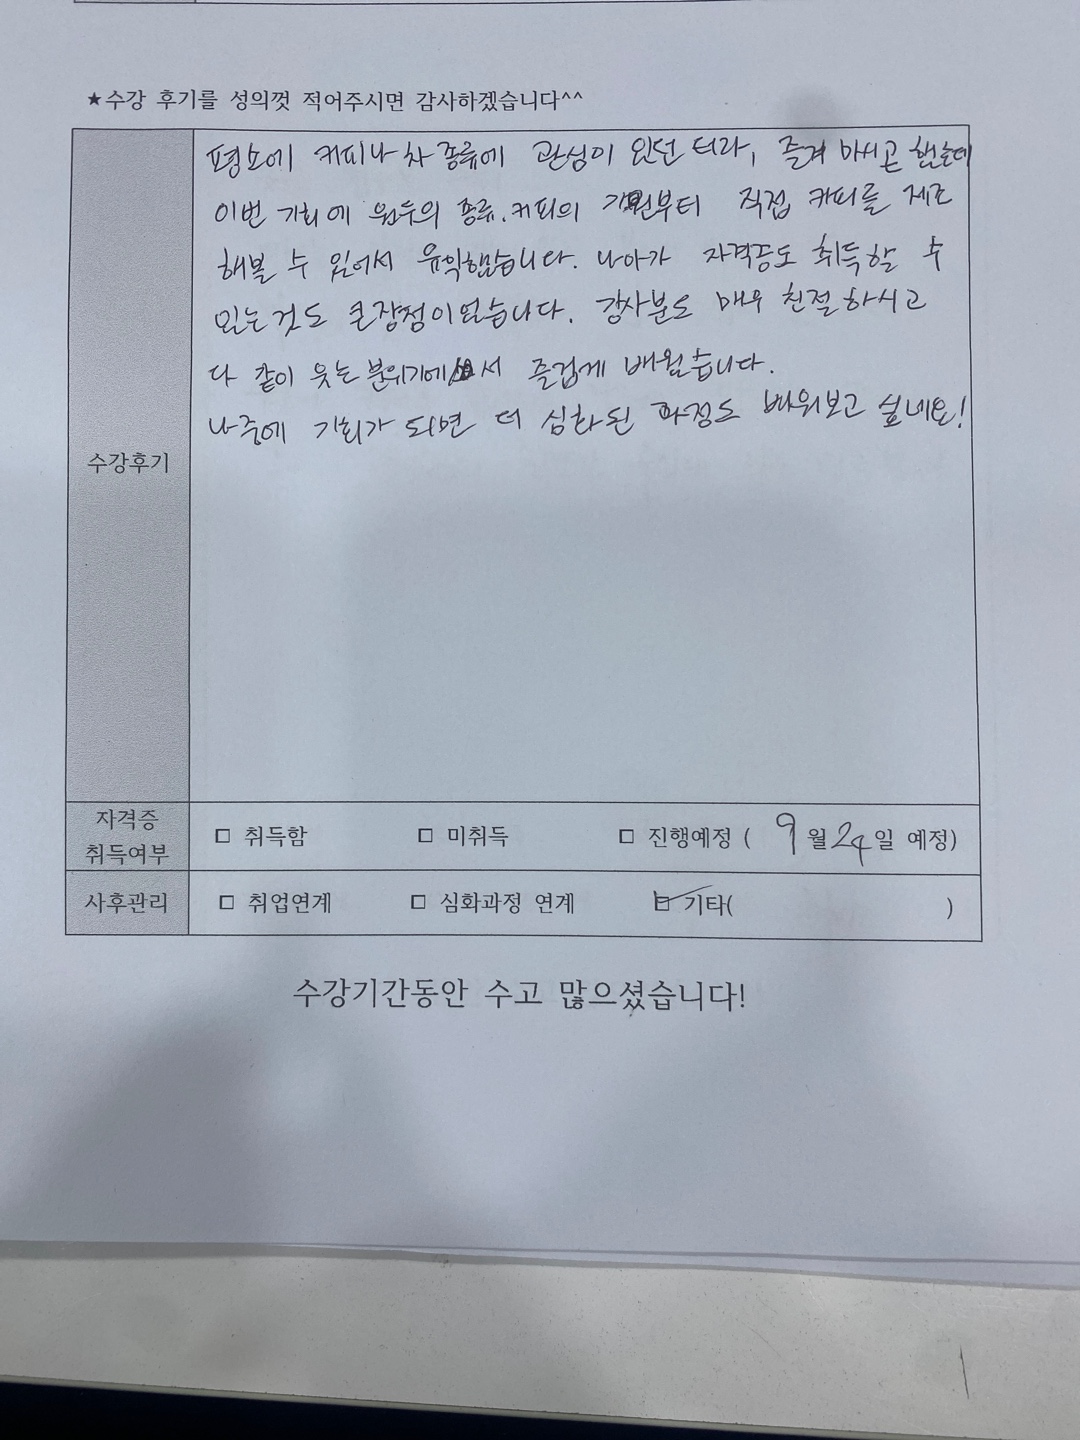 ★수강 후기를 성의껏 적어주시면 감사하겠습니다^^
수강후기
평소에 커피나 차 종류에 관심이 있던 터라, 즐겨 마시곤 했는데
이번 기회에 원두의 종류, 커피의 기원부터 직접 커피를 제조
해볼 수 있어서 유익했습니다. 나아가 자격증도 취득할 수
있는것도 큰장점이었습니다. 강사분도 매우 친절하시고
다 같이 웃는 분위기에서 즐겁게 배웠습니다.
나중에 기회가 되면 더 심화된 과정도 배워보고 싶네요!
자격증
취득여부
☐ 취득함 ☐ 미취득 ☐ 진행예정 ( 9월 24일 예정)
사후관리 ☐ 취업연계 ☐ 심화과정 연계 ☑ 기타( )
수강기간동안 수고 많으셨습니다!